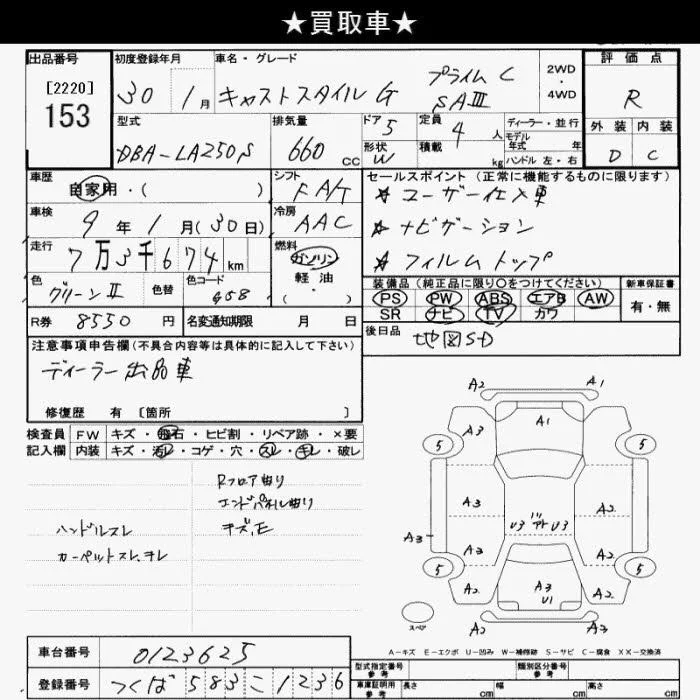 ★買取車★
出品番号
[2220]
153
初度登録年月
30年 1月
車名・グレード
キャストスタイルG プライムC SAⅢ
2WD
・
4WD
評価点
R
外装 内装
D C
型式
DBA-LA250S
排気量
660 cc
ドア 5
形状 W
定員 4 人
積載 kg
ディーラー・並行
モデル
年式 年
ハンドル 左・右
車歴
自家用・( )
シフト
FA/T
車検
9年 1月(30日)
冷房
AAC
走行
7万3千674km
燃料
ガソリン
軽油
・( )
色
グリーンⅡ
色替
色コード
G58
R券 8550円
名変通知期限 月 日
セールスポイント(正常に機能するものに限ります)
★ユーザー仕入車
★ナビゲーション
★フィルムトップ
装備品(純正品に限り○をつけてください)
PS PW ABS エアB AW
SR ナビ TV カワ
新車保証書
有・無
後日品 地図SD
注意事項申告欄(不具合内容等は具体的に記入して下さい)
ディーラー出品車
修復歴 有[箇所 ]
検査員 FW キズ・飛石・ヒビ割・リペア跡・×要
記入欄 内装 キズ・汚レ・コゲ・穴・スレ・キレ・破レ
Rフロア曲り
エンドパネル曲り
キズ、E
ハンドルスレ
カーペットスレ、キレ
A2 A1
A3 A1 A2
5 5
A3 A2
U3 U3
A3
A3 A2
5 5
A2 A3 U1 A2
A2 A2
スペア
A-キズ E-エクボ U-凹み W-補修跡 S-サビ C-腐食 XX-交換済
車台番号 0123625
登録番号 つくば583こ1236
型式指定番号
参考
類別区分番号
参考
車庫証明用
参考
長さ cm 幅 cm 高さ cm